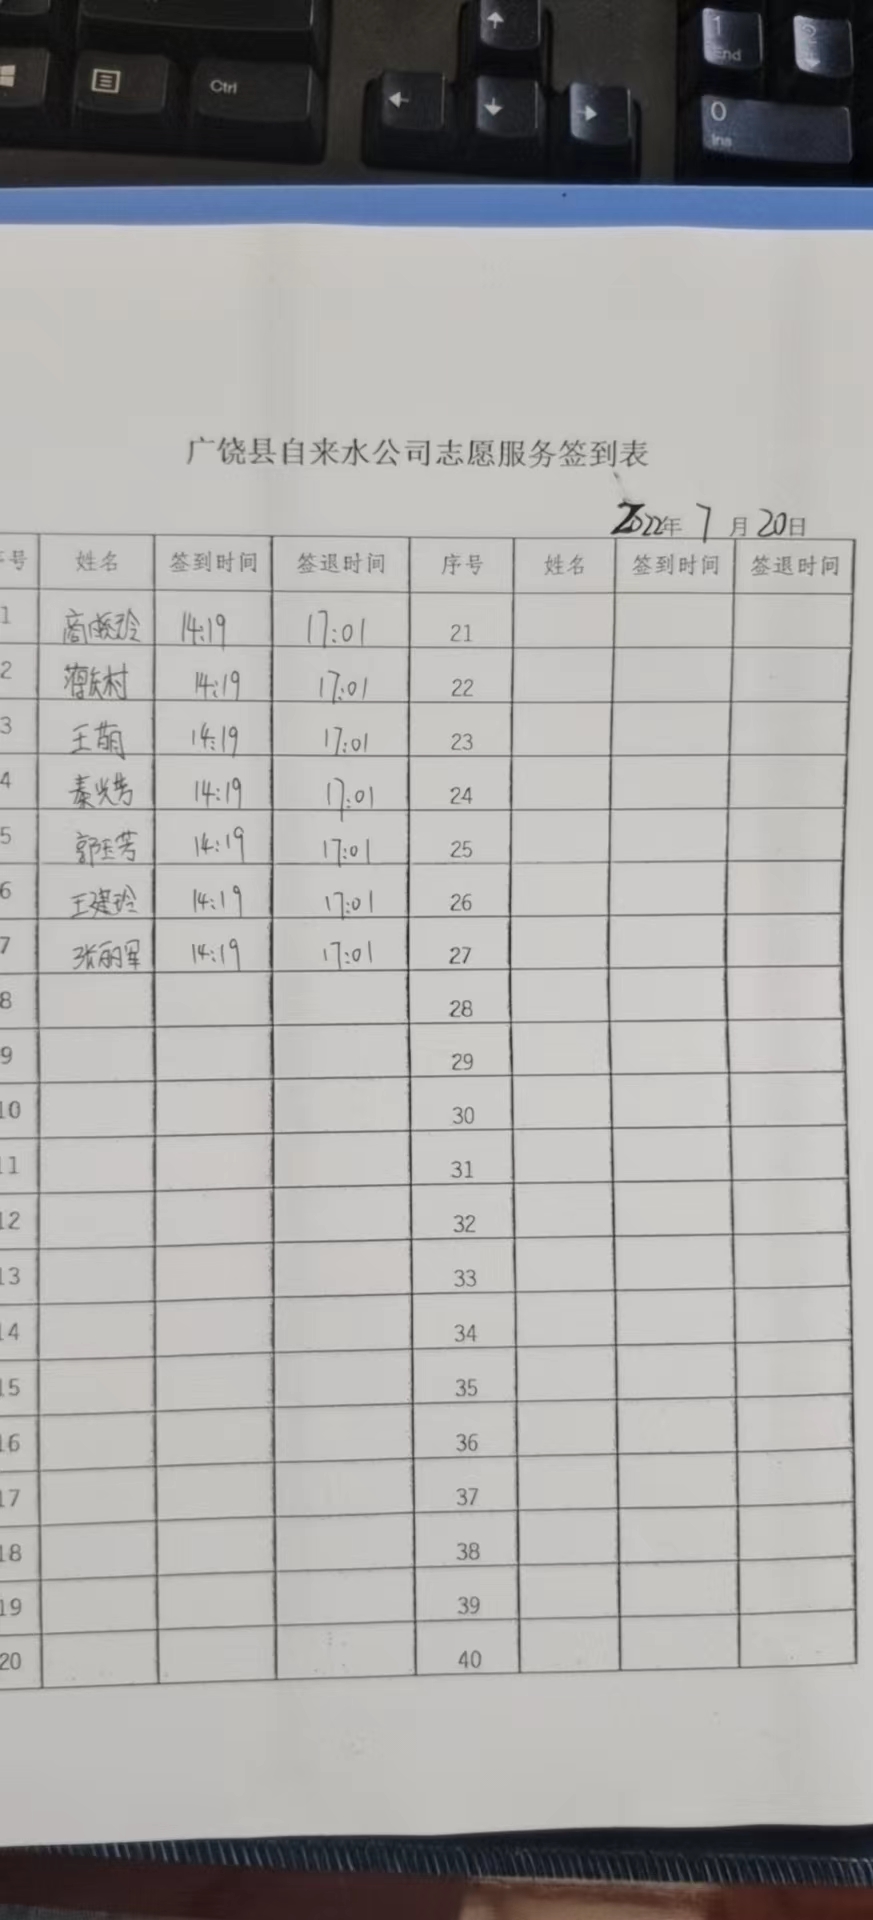 Ctrl
1
End
2
0
Ins
广饶县自来水公司志愿服务签到表
2022年 7 月 20日
序号 姓名 签到时间 签退时间 序号 姓名 签到时间 签退时间
1 14:19 17:01 21
2 14:19 17:01 22
3 王萌 14:19 17:01 23
4 秦光芳 14:19 17:01 24
5 郭玉芳 14:19 17:01 25
6 王建玲 14:19 17:01 26
7 张丽军 14:19 17:01 27
8 28
9 29
10 30
11 31
12 32
13 33
14 34
15 35
16 36
17 37
18 38
19 39
20 40